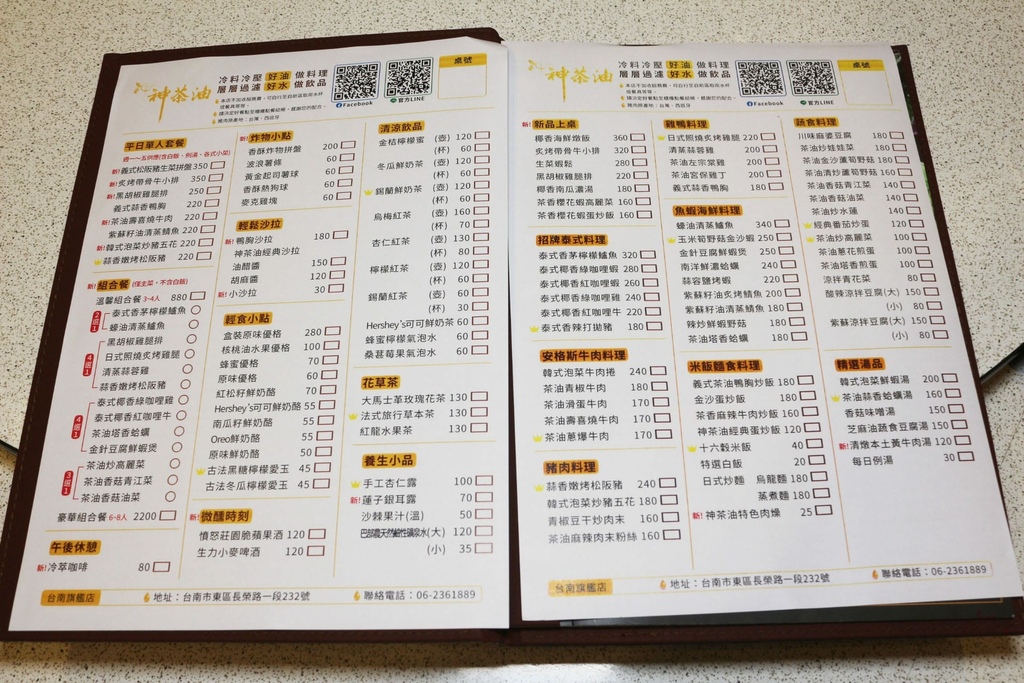 神茶油
冷料冷壓 好油 做料理
層層過濾 好水 做飲品
Facebook
官方LINE
桌號
平日單人套餐
週一~五供應(含白飯、例湯、各式小菜)
新!義式松阪豬生菜拼盤 350
新!炙烤帶骨牛小排 350
新!黑胡椒雞腿排 250
義式蒜香鴨胸 220
新!茶油壽喜燒牛肉 220
紫蘇籽油清蒸鯖魚 220
新!韓式泡菜炒豬五花 220
蒜香嫩烤松阪豬 220
新!組合餐 (僅主菜，不含白飯)
溫馨組合餐 3-4人 880
2選1
泰式香茅檸檬鱸魚
蠔油清蒸鱸魚
4選1
黑胡椒雞腿排
日式照燒炙烤雞腿
清蒸蒜蓉雞
蒜香嫩烤松阪豬
4選1
泰式椰香綠咖哩雞
泰式椰香紅咖哩牛
茶油塔香蛤蠣
金針豆腐鮮蝦煲
3選1
茶油炒高麗菜
茶油香菇青江菜
茶油香菇油菜
豪華組合餐 6-8人 2200
午後休憩
新!冷萃咖啡 80
新!炸物小點
香酥炸物拼盤 200
波浪薯條 60
黃金起司薯球 60
香酥熱狗球 60
麥克雞塊 60
輕鬆沙拉
新!鴨胸沙拉 180
神茶油經典沙拉
油醋醬 150
胡麻醬 120
新!小沙拉 30
輕食小點
盒裝原味優格 280
核桃油水果優格 100
蜂蜜優格 70
原味優格 60
紅松籽鮮奶酪 70
Hershey's可可鮮奶酪 55
南瓜籽鮮奶酪 55
Oreo鮮奶酪 55
原味鮮奶酪 50
古法黑糖檸檬愛玉 45
古法冬瓜檸檬愛玉 45
新!微醺時刻
憤怒莊園脆蘋果酒 120
生力小麥啤酒 120
清涼飲品
金桔檸檬蜜 (壺) 120
(杯) 60
冬瓜鮮奶茶 (壺) 120
(杯) 60
錫蘭鮮奶茶 (壺) 120
(杯) 60
烏梅紅茶 (壺) 160
(杯) 70
杏仁紅茶 (壺) 130
(杯) 80
檸檬紅茶 (壺) 120
(杯) 60
錫蘭紅茶 (壺) 60
(杯) 30
Hershey's可可鮮奶茶 60
蜂蜜檸檬氣泡水 60
桑葚莓果氣泡水 60
花草茶
大馬士革玫瑰花茶 130
法式旅行草本茶 130
紅龍水果茶 130
養生小品
手工杏仁露 100
新!蓮子銀耳露 70
沙棘果汁(溫) 50
巴部農天然鹼性礦泉水(大) 120
(小) 35
台南旗艦店
地址：台南市東區長榮路一段232號
聯絡電話：06-2361889
神茶油
冷料冷壓 好油 做料理
層層過濾 好水 做飲品
Facebook
官方LINE
桌號
新!新品上桌
椰香海鮮燉飯 360
炙烤帶骨牛小排 320
生菜蝦鬆 280
黑胡椒雞腿排 220
椰香南瓜濃湯 180
茶香櫻花蝦高麗菜 160
茶香櫻花蝦蛋炒飯 160
招牌泰式料理
泰式香茅檸檬鱸魚 320
泰式椰香綠咖哩蝦 280
泰式椰香紅咖哩蝦 260
泰式椰香綠咖哩雞 240
泰式椰香紅咖哩牛 220
泰式香辣打拋豬 180
安格斯牛肉料理
韓式泡菜牛肉捲 240
茶油青椒牛肉 180
茶油滑蛋牛肉 170
茶油壽喜燒牛肉 170
茶油蔥爆牛肉 170
豬肉料理
蒜香嫩烤松阪豬 240
韓式泡菜炒豬五花 180
青椒豆干炒肉末 160
茶油麻辣肉末粉絲 160
雞鴨料理
日式照燒炙烤雞腿 220
清蒸蒜蓉雞 220
茶油左宗棠雞 200
茶油宮保雞丁 200
義式蒜香鴨胸 180
魚蝦海鮮料理
蠔油清蒸鱸魚 340
玉米筍野菇金沙蝦 250
金針豆腐鮮蝦煲 250
南洋鮮濃蛤蠣 240
蒜容鹽烤蝦 220
紫蘇籽油炙烤鯖魚 200
紫蘇籽油清蒸鯖魚 180
辣炒鮮蝦野菇 180
茶油塔香蛤蠣 180
米飯麵食料理
義式茶油鴨胸炒飯 180
金沙蛋炒飯 180
茶香麻辣牛肉炒飯 160
神茶油經典蛋炒飯 120
十六穀米飯 40
特選白飯 20
日式炒麵 烏龍麵 180
蒸煮麵 180
新!神茶油特色肉燥 25
蔬食料理
川味麻婆豆腐 180
茶油炒娃娃菜 180
茶油金沙蘆筍野菇 180
茶油清炒蘆筍野菇 160
茶油香菇青江菜 140
茶油香菇油菜 140
茶油炒水蓮 140
經典番茄炒蛋 120
茶油炒高麗菜 100
茶油蔥花煎蛋 100
茶油塔香煎蛋 100
涼拌青花菜 80
酸辣涼拌豆腐(大) 150
(小) 80
紫蘇涼拌豆腐(大) 150
(小) 80
精選湯品
韓式泡菜鮮蝦湯 200
茶油蒜香蛤蠣湯 160
香菇味噌湯 150
芝麻油蔬食豆腐湯 150
新!清燉本土黃牛肉湯 120
每日例湯 30
台南旗艦店
地址：台南市東區長榮路一段232號
聯絡電話：06-2361889